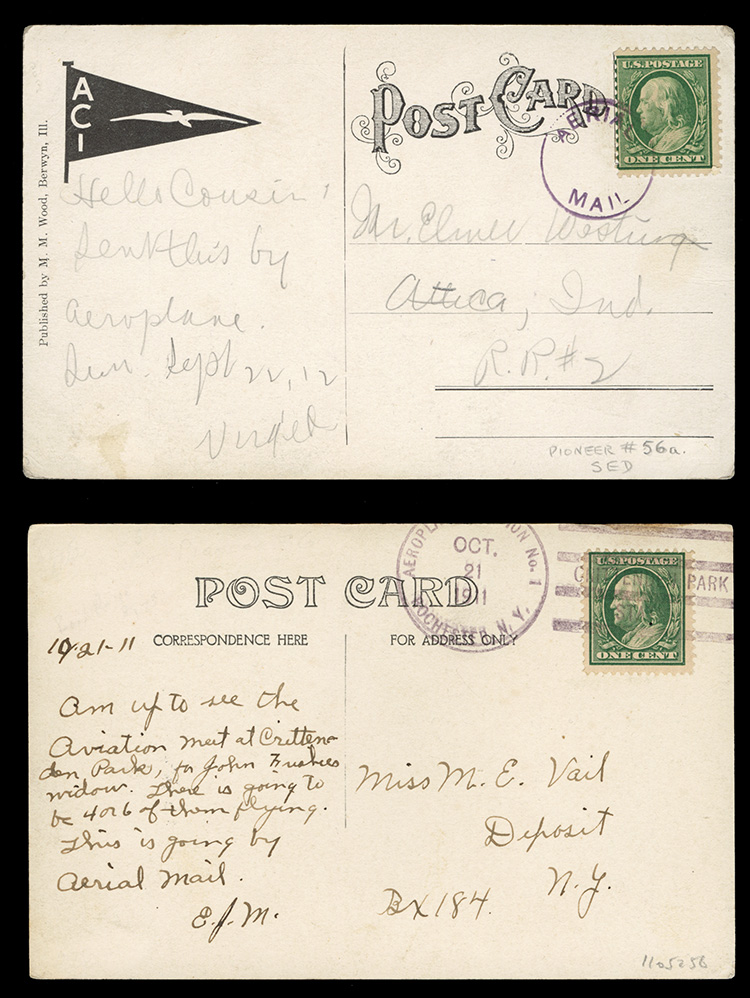 ACI
POST CARD
U.S. POSTAGE
ONE CENT
AERIAL
MAIL
Published by M. M. Wood, Berwyn, Ill.
Hello Cousin
Sent this by
aeroplane.
Sun. Sept 22, 12
Virgil
Mr. Elmer
Attica, Ind.
R.R. #2
PIONEER # 56a.
SED
POST CARD
AEROPL ION No. 1
OCT.
21
1911
ROCHESTER N.Y.
PARK
U.S. POSTAGE
ONE CENT
10-21-11
CORRESPONDENCE HERE
FOR ADDRESS ONLY
Am up to see the
Aviation meet at Critten-
den Park, for John
widow. There is going to
be 4 or 6 of them flying.
This is going by
Aerial Mail.
E.J.M.
Miss M. E. Vail
Deposit
N.Y.
Bx 184.
1105256